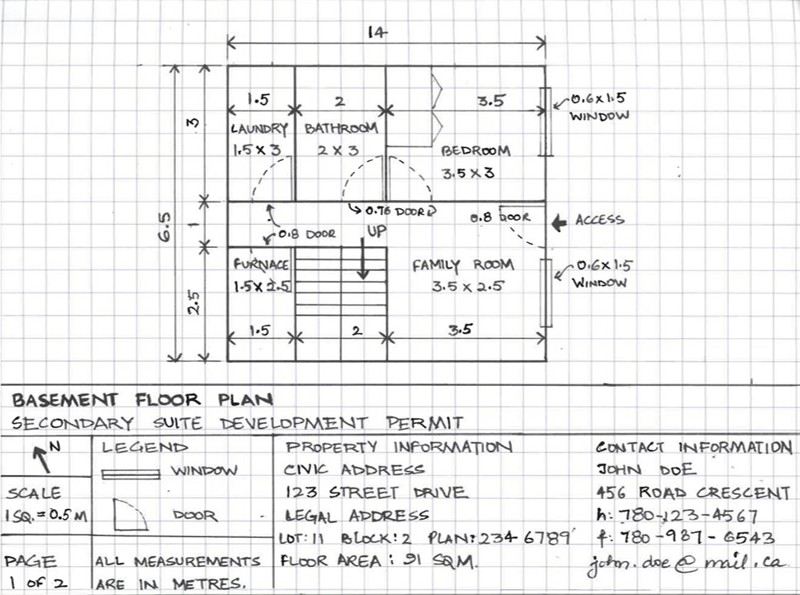 14
1.5
2
3.5
0.6 x 1.5
WINDOW
3
LAUNDRY
1.5 X 3
BATHROOM
2 X 3
BEDROOM
3.5 X 3
6.5
1
0.76 DOOR
0.8 DOOR
ACCESS
0.8 DOOR
UP
FURNACE
1.5 X 2.5
FAMILY ROOM
3.5 X 2.5
0.6 x 1.5
WINDOW
2.5
1.5
2
3.5
BASEMENT FLOOR PLAN
SECONDARY SUITE DEVELOPMENT PERMIT
N
SCALE
1 SQ. = 0.5 M
PAGE
1 OF 2
LEGEND
WINDOW
DOOR
ALL MEASUREMENTS
ARE IN METRES.
PROPERTY INFORMATION
CIVIC ADDRESS
123 STREET DRIVE
LEGAL ADDRESS
LOT: 11 BLOCK: 2 PLAN: 234 6789
FLOOR AREA: 91 SQ.M.
CONTACT INFORMATION
JOHN DOE
456 ROAD CRESCENT
h: 780-123-4567
f: 780-987-6543
john.doe@mail.ca